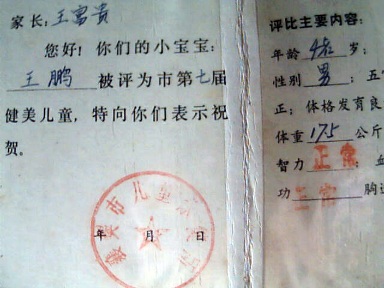 家长:王富贵
您好!你们的小宝宝:
王鹏 被评为市第七届
健美儿童,特向你们表示祝
贺。
年 月 日
评比主要内容:
年龄 岁;
性别 男;五
正;体格发育良
体重 17.5 公斤
智力 正常;
功 正常 胸